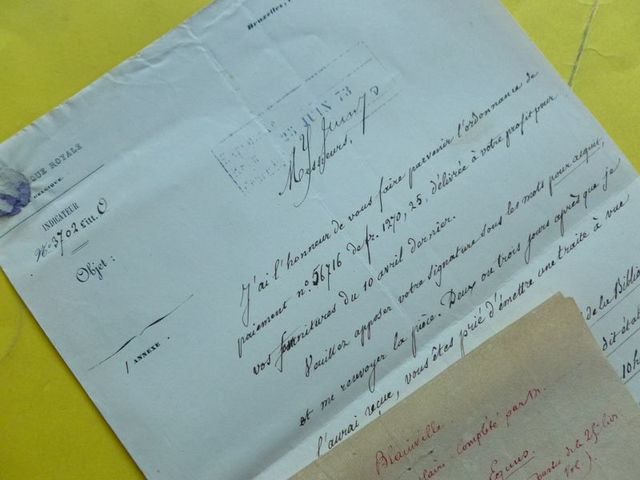 Bruxelles,
RUE ROYALE
INDICATEUR
N° 3702 litt. O
Objet :
1 ANNEXE.
JUIN 73
Messieurs,
J'ai l'honneur de vous faire parvenir l'ordonnance de
paiement n° 56716 de fr. 1270,25, délivrée à votre profit pour
vos fournitures du 10 avril dernier.
Veuillez apposer votre signature sous les mots pour acquit,
et me renvoyer la pièce. Deux ou trois jours après que je
l'aurai reçue, vous êtes prié d'émettre une traite à vue
de la
dit état
10h
Blainville.
complété par